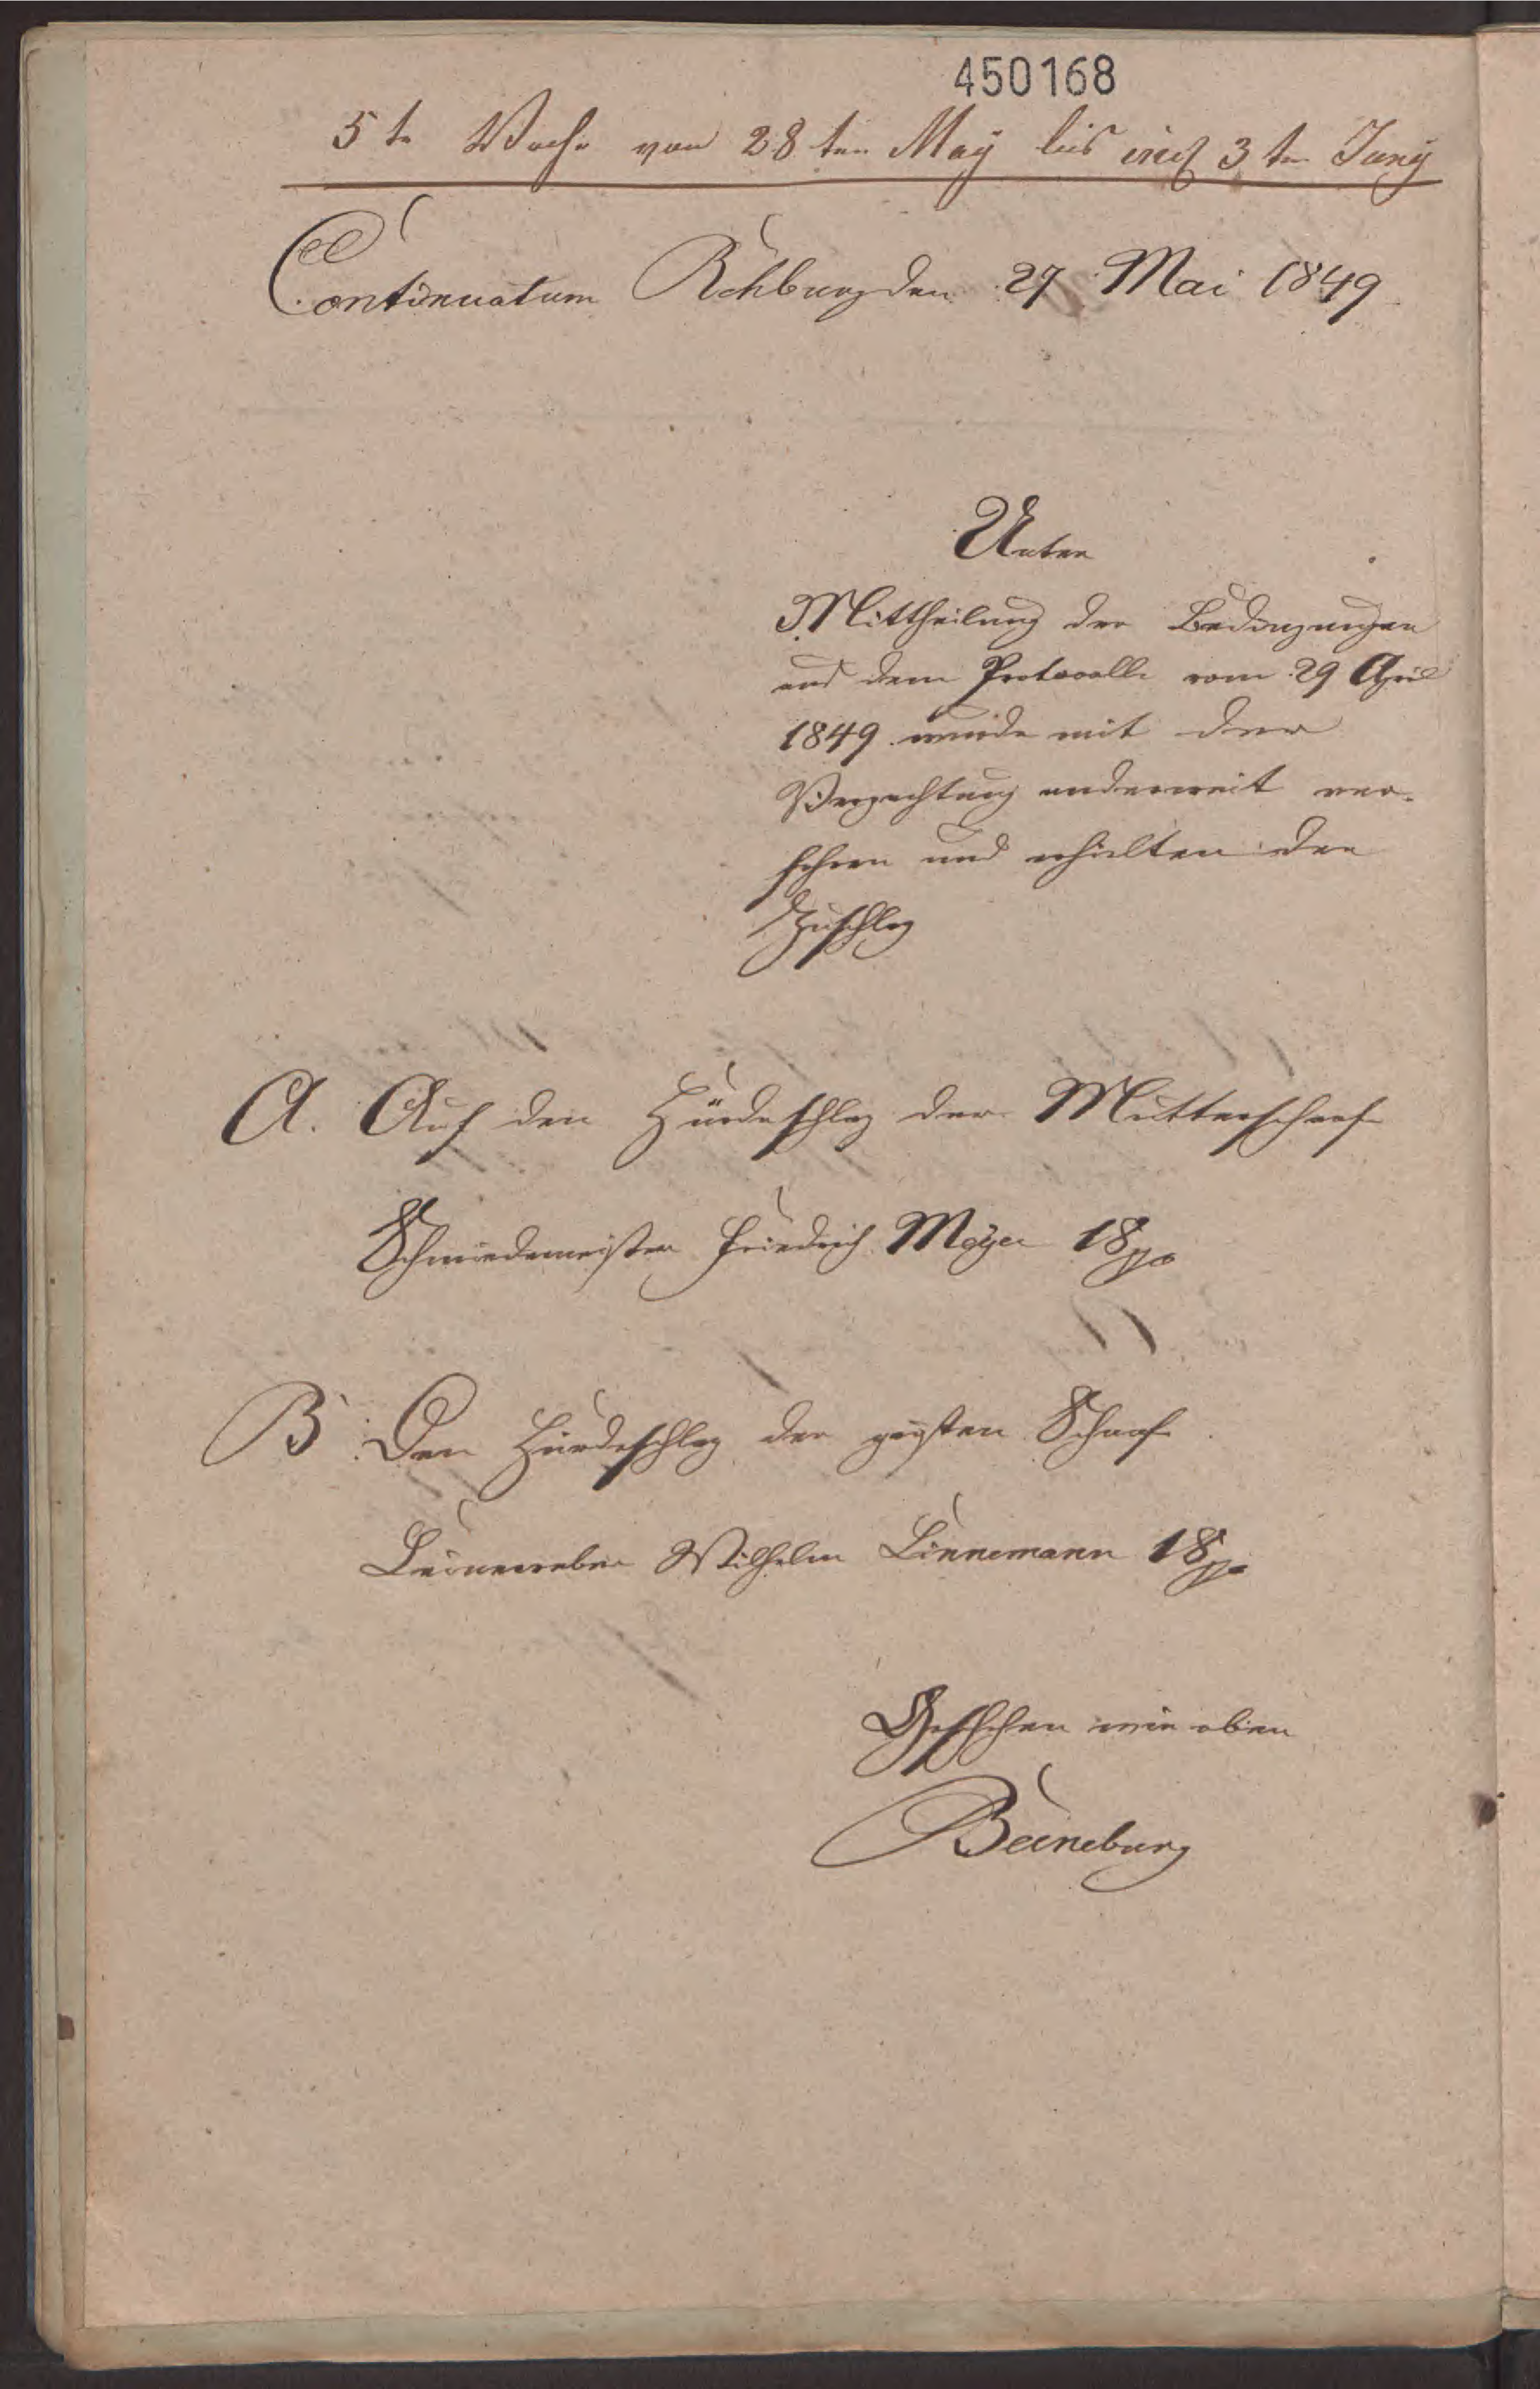 450168
5te Woche von 28ten May bis incl 3ten Juny
Continuatum Rehburg den 27 Mai 1849
Unter
Mittheilung der Bedingungen
aus dem Protocolle vom 29 April
1849 wurde mit der
Verpachtung anderweit ver-
fahren und erhielten den
Zuschlag
A. Auf den Hürdeschlag der Mutterschafe
Schmiedemeister Friedrich Meyer 18
B. Den Hürdeschlag der güsten Schaafe
Leineweber Wilhelm Linnemann 18
Geschehen wie oben
Beineburg